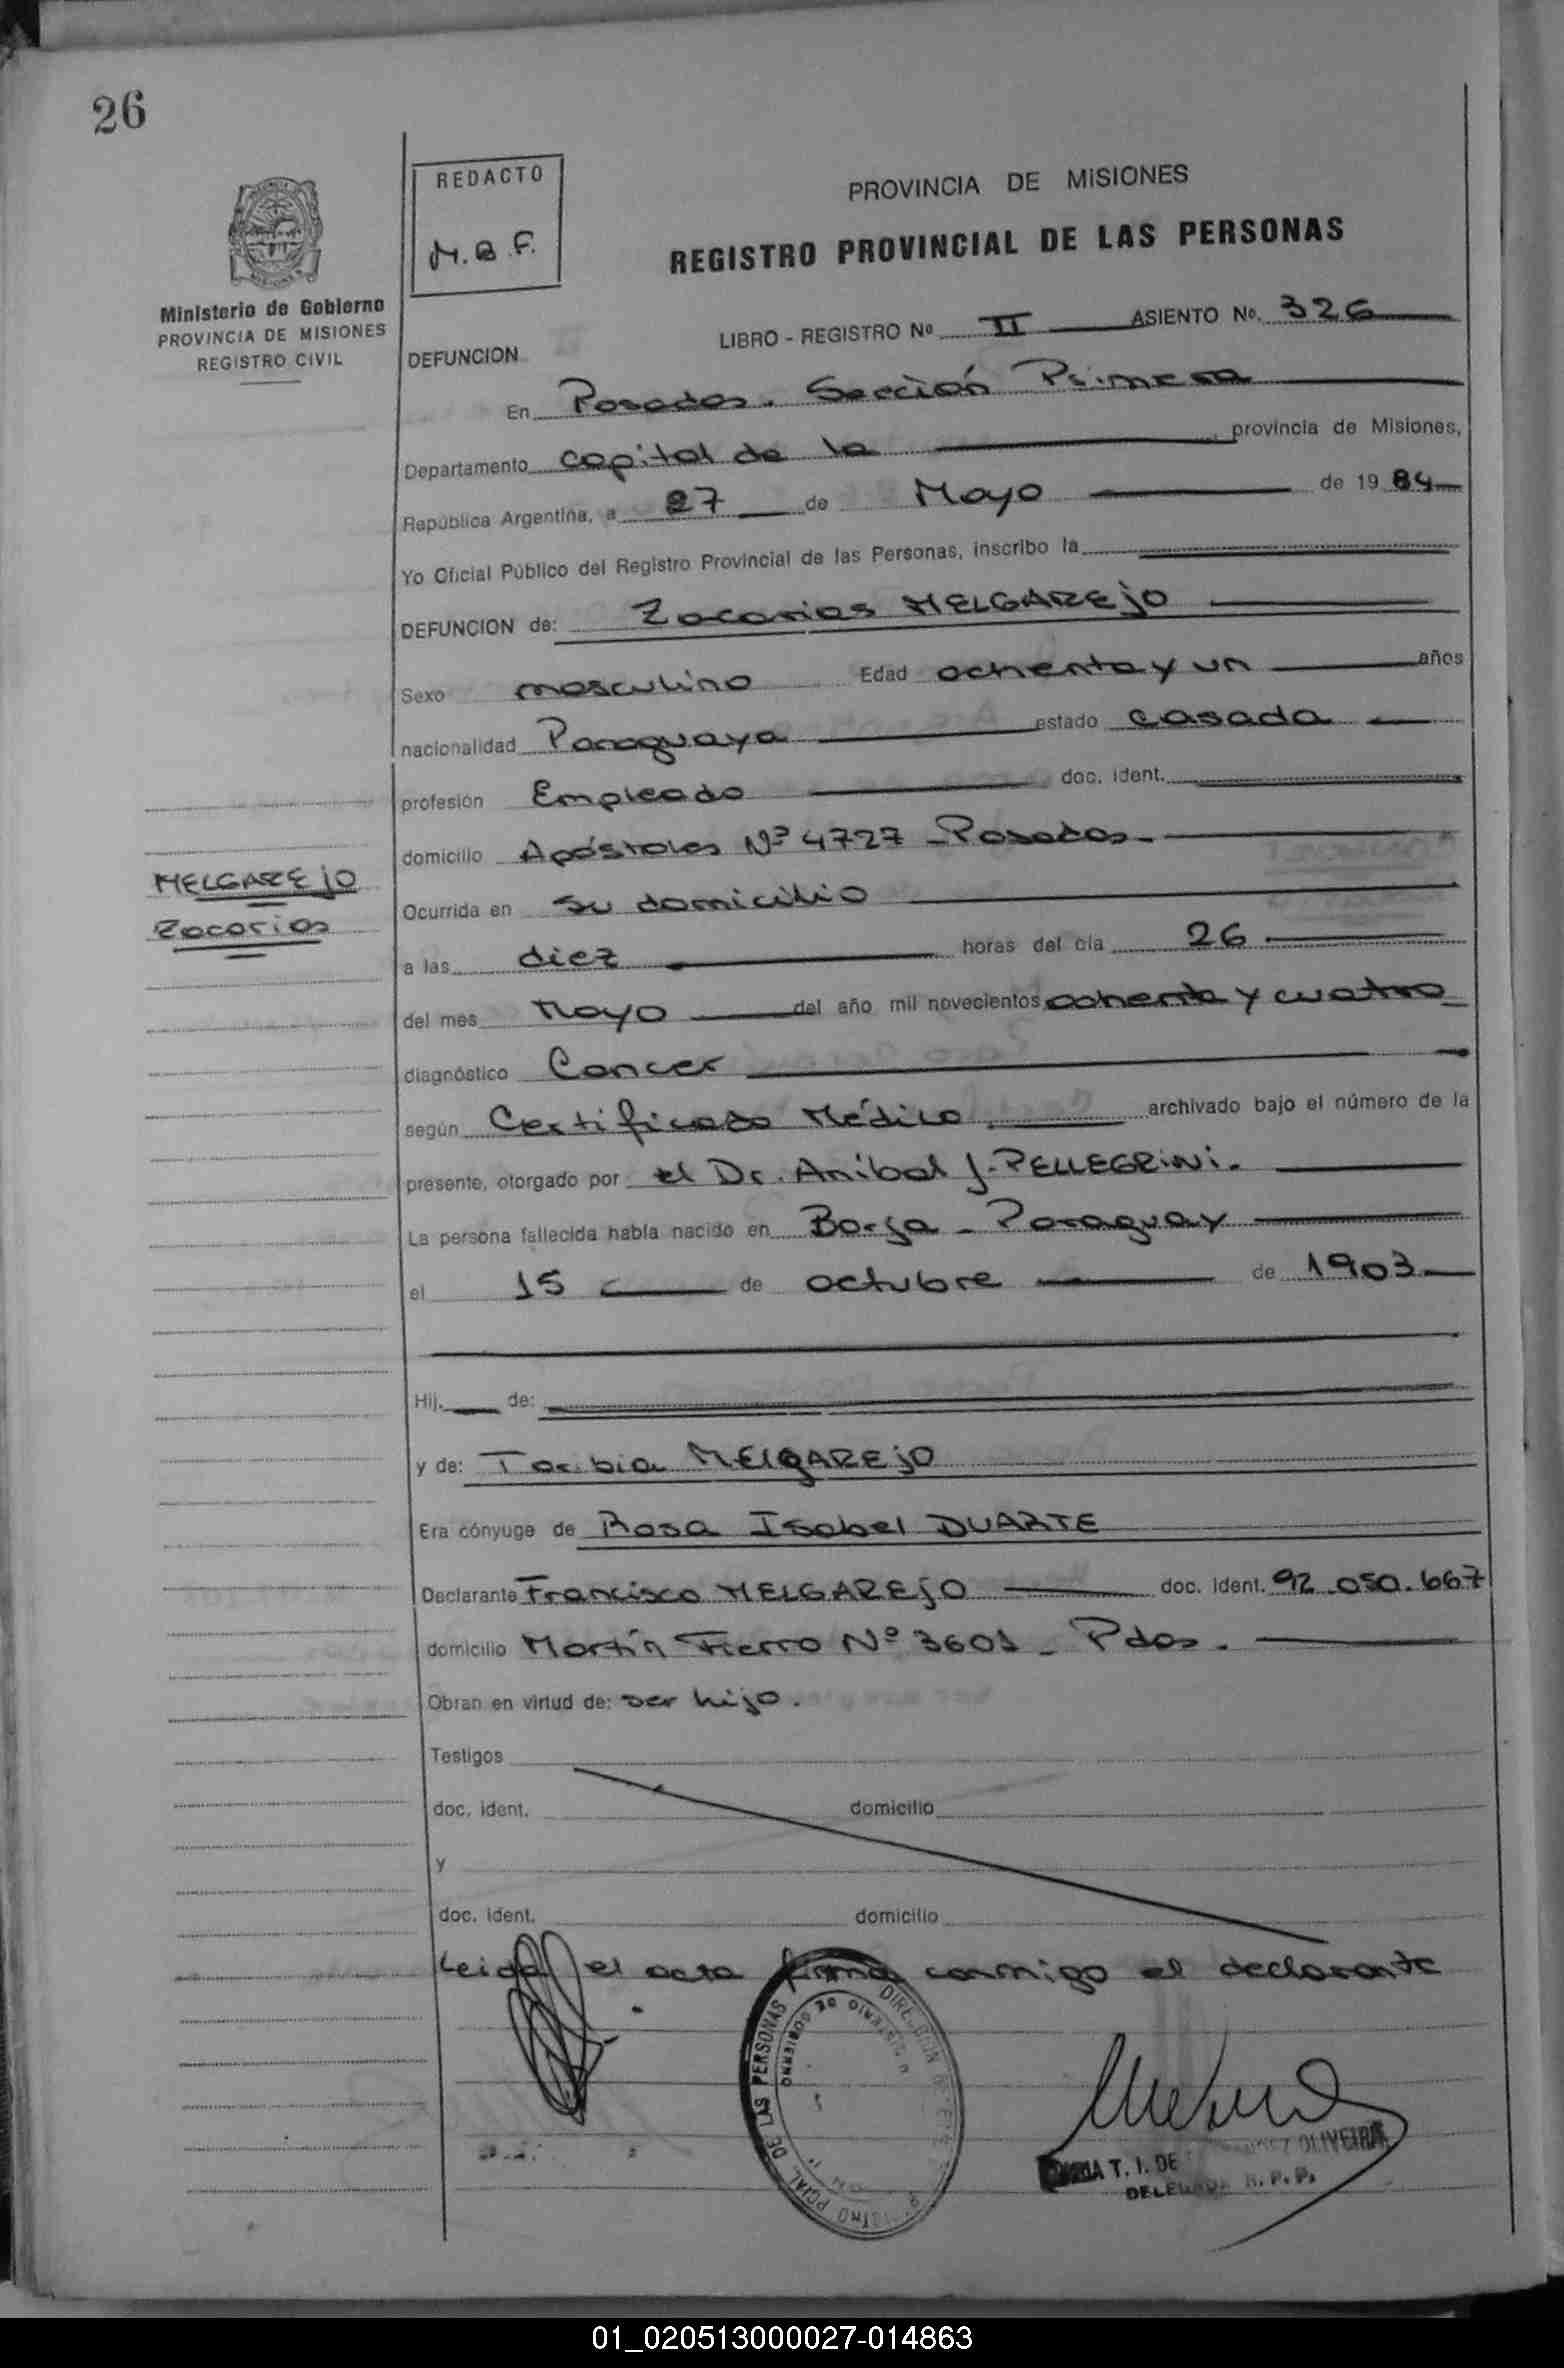 26
REDACTO
M.B.F.
PROVINCIA DE MISIONES
REGISTRO PROVINCIAL DE LAS PERSONAS
Ministerio de Gobierno
PROVINCIA DE MISIONES
REGISTRO CIVIL
LIBRO - REGISTRO Nº II ASIENTO Nº. 326
DEFUNCION
En Posadas. Sección Primera
Departamento Capital de la provincia de Misiones,
República Argentina, a 27 de Mayo de 1984
Yo Oficial Público del Registro Provincial de las Personas, inscribo la
DEFUNCION de: Zacarias MELGAREJO
Sexo masculino Edad ochenta y un años
nacionalidad Paraguaya estado casada
profesión Empleado doc. ident.
domicilio Apóstoles Nº 4727 - Posadas -
MELGAREJO
Zacarias
Ocurrida en su domicilio
a las diez horas del día 26
del mes Mayo del año mil novecientos ochenta y cuatro
diagnóstico Cancer
según Certificado Médico archivado bajo el número de la
presente, otorgado por el Dr. Anibal J. PELLEGRINI.
La persona fallecida había nacido en Borja - Paraguay
el 15 de octubre de 1903
Hij. de:
y de: Toribia MELGAREJO
Era cónyuge de Rosa Isabel DUARTE
Declarante Francisco MELGAREJO doc. ident. 92.050.667
domicilio Martín Fierro Nº 3601 - Pdas.
Obran en virtud de: ser hijo.
Testigos
doc. ident. domicilio
y
doc. ident. domicilio
Leida el acta firma conmigo el declarante
DIRECCION
MINISTERIO DE GOBIERNO
REGISTRO PCIAL. DE LAS PERSONAS
MARIA T. I. DE OLIVEIRA
DELEGADA R. P. P.
01_020513000027-014863